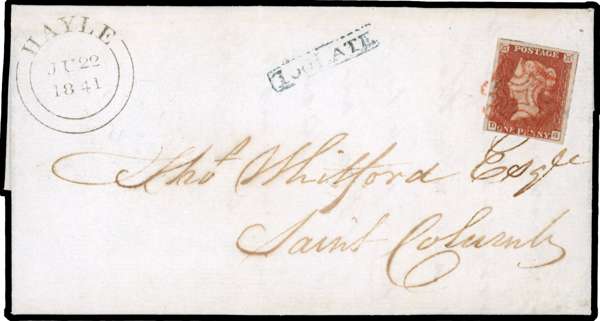 HAYLE
JU 22
1841
TOO LATE
POSTAGE
ONE PENNY
Thos Whitford Esqre
Saint Columb